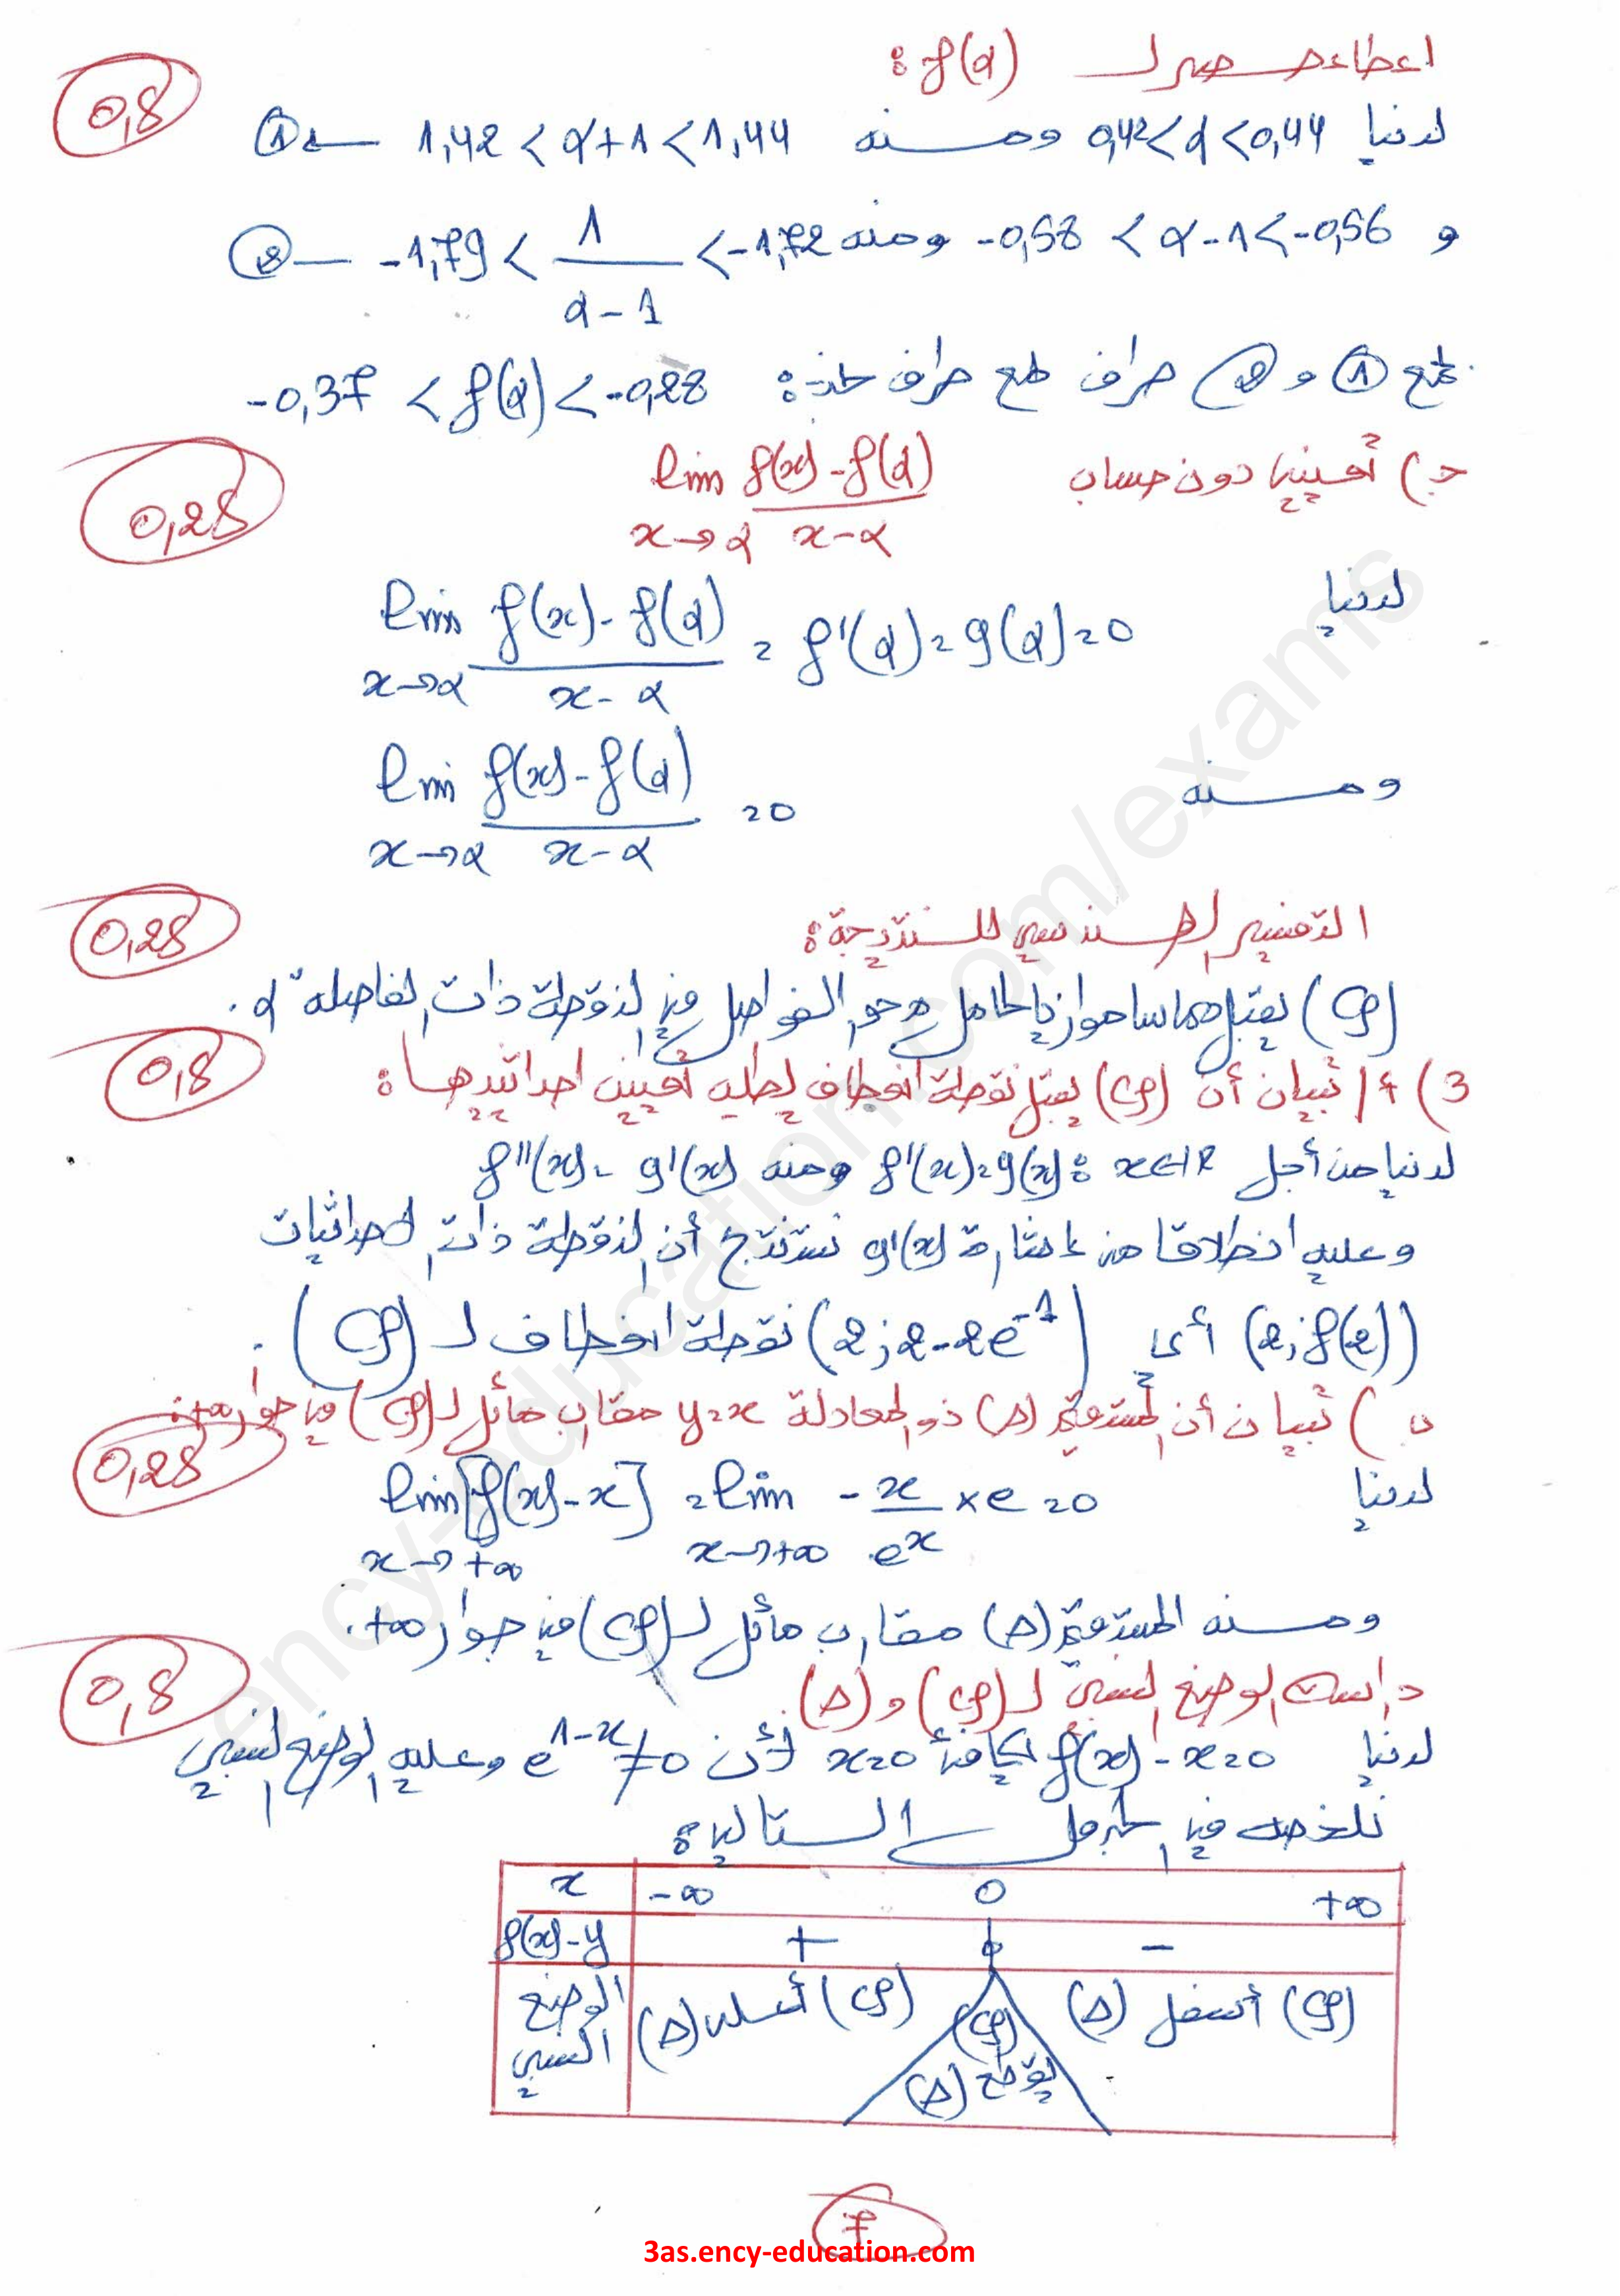 اعطاء حصر لـ f(α) :
0,5
لدينا 0,42<α<0,44 ومنه 1,42 < α+1 < 1,44 — ①
و -0,58 < α-1 < -0,56 ومنه -1,79 < 1/(α-1) < -1,72 — ②
بجمع ① و ② طرف طرف نجد : -0,37 < f(α) < -0,28
0,25
ج) تعيين دون حساب lim f(x)-f(α) / x-α
x→α
لدينا lim f(x)-f(α) / x-α = f'(α) = g(α) = 0
x→α
ومنه lim f(x)-f(α) / x-α = 0
x→α
0,25
التفسير الهندسي للنتيجة :
(Cf) يقبل مماسا موازيا لحامل محور الفواصل في النقطة ذات الفاصلة α .
0,5
3) أ/ تبيان أن (Cf) يقبل نقطة انعطاف يطلب تعيين احداثييها :
لدينا من أجل x∈IR : f'(x)=g(x) ومنه f''(x) = g'(x)
وعليه انطلاقا من اشارة g'(x) نستنتج أن النقطة ذات الاحداثيات
(2;f(2)) أي (2;2-2e^-1) نقطة انعطاف لـ (Cf) .
ب) تبيان أن المستقيم (Δ) ذو المعادلة y=x مقارب مائل لـ (Cf) في جوار +∞ :
0,25
لدينا lim [f(x)-x] = lim - x/e^x × e = 0
x→+∞ x→+∞
ومنه المستقيم (Δ) مقارب مائل لـ (Cf) في جوار +∞ .
0,5
دراسة الوضع النسبي لـ (Cf) و (Δ) .
لدينا f(x)-x=0 يكافئ x=0 لأن e^1-x ≠ 0 وعليه الوضع النسبي
نلخصه في الجدول التالي :
x -∞ 0 +∞
f(x)-y + 0 -
الوضع النسبي (Cf) أعلى (Δ) (Cf) يقطع (Δ) (Cf) أسفل (Δ)
7
3as.ency-education.com
ency-education.com/exams